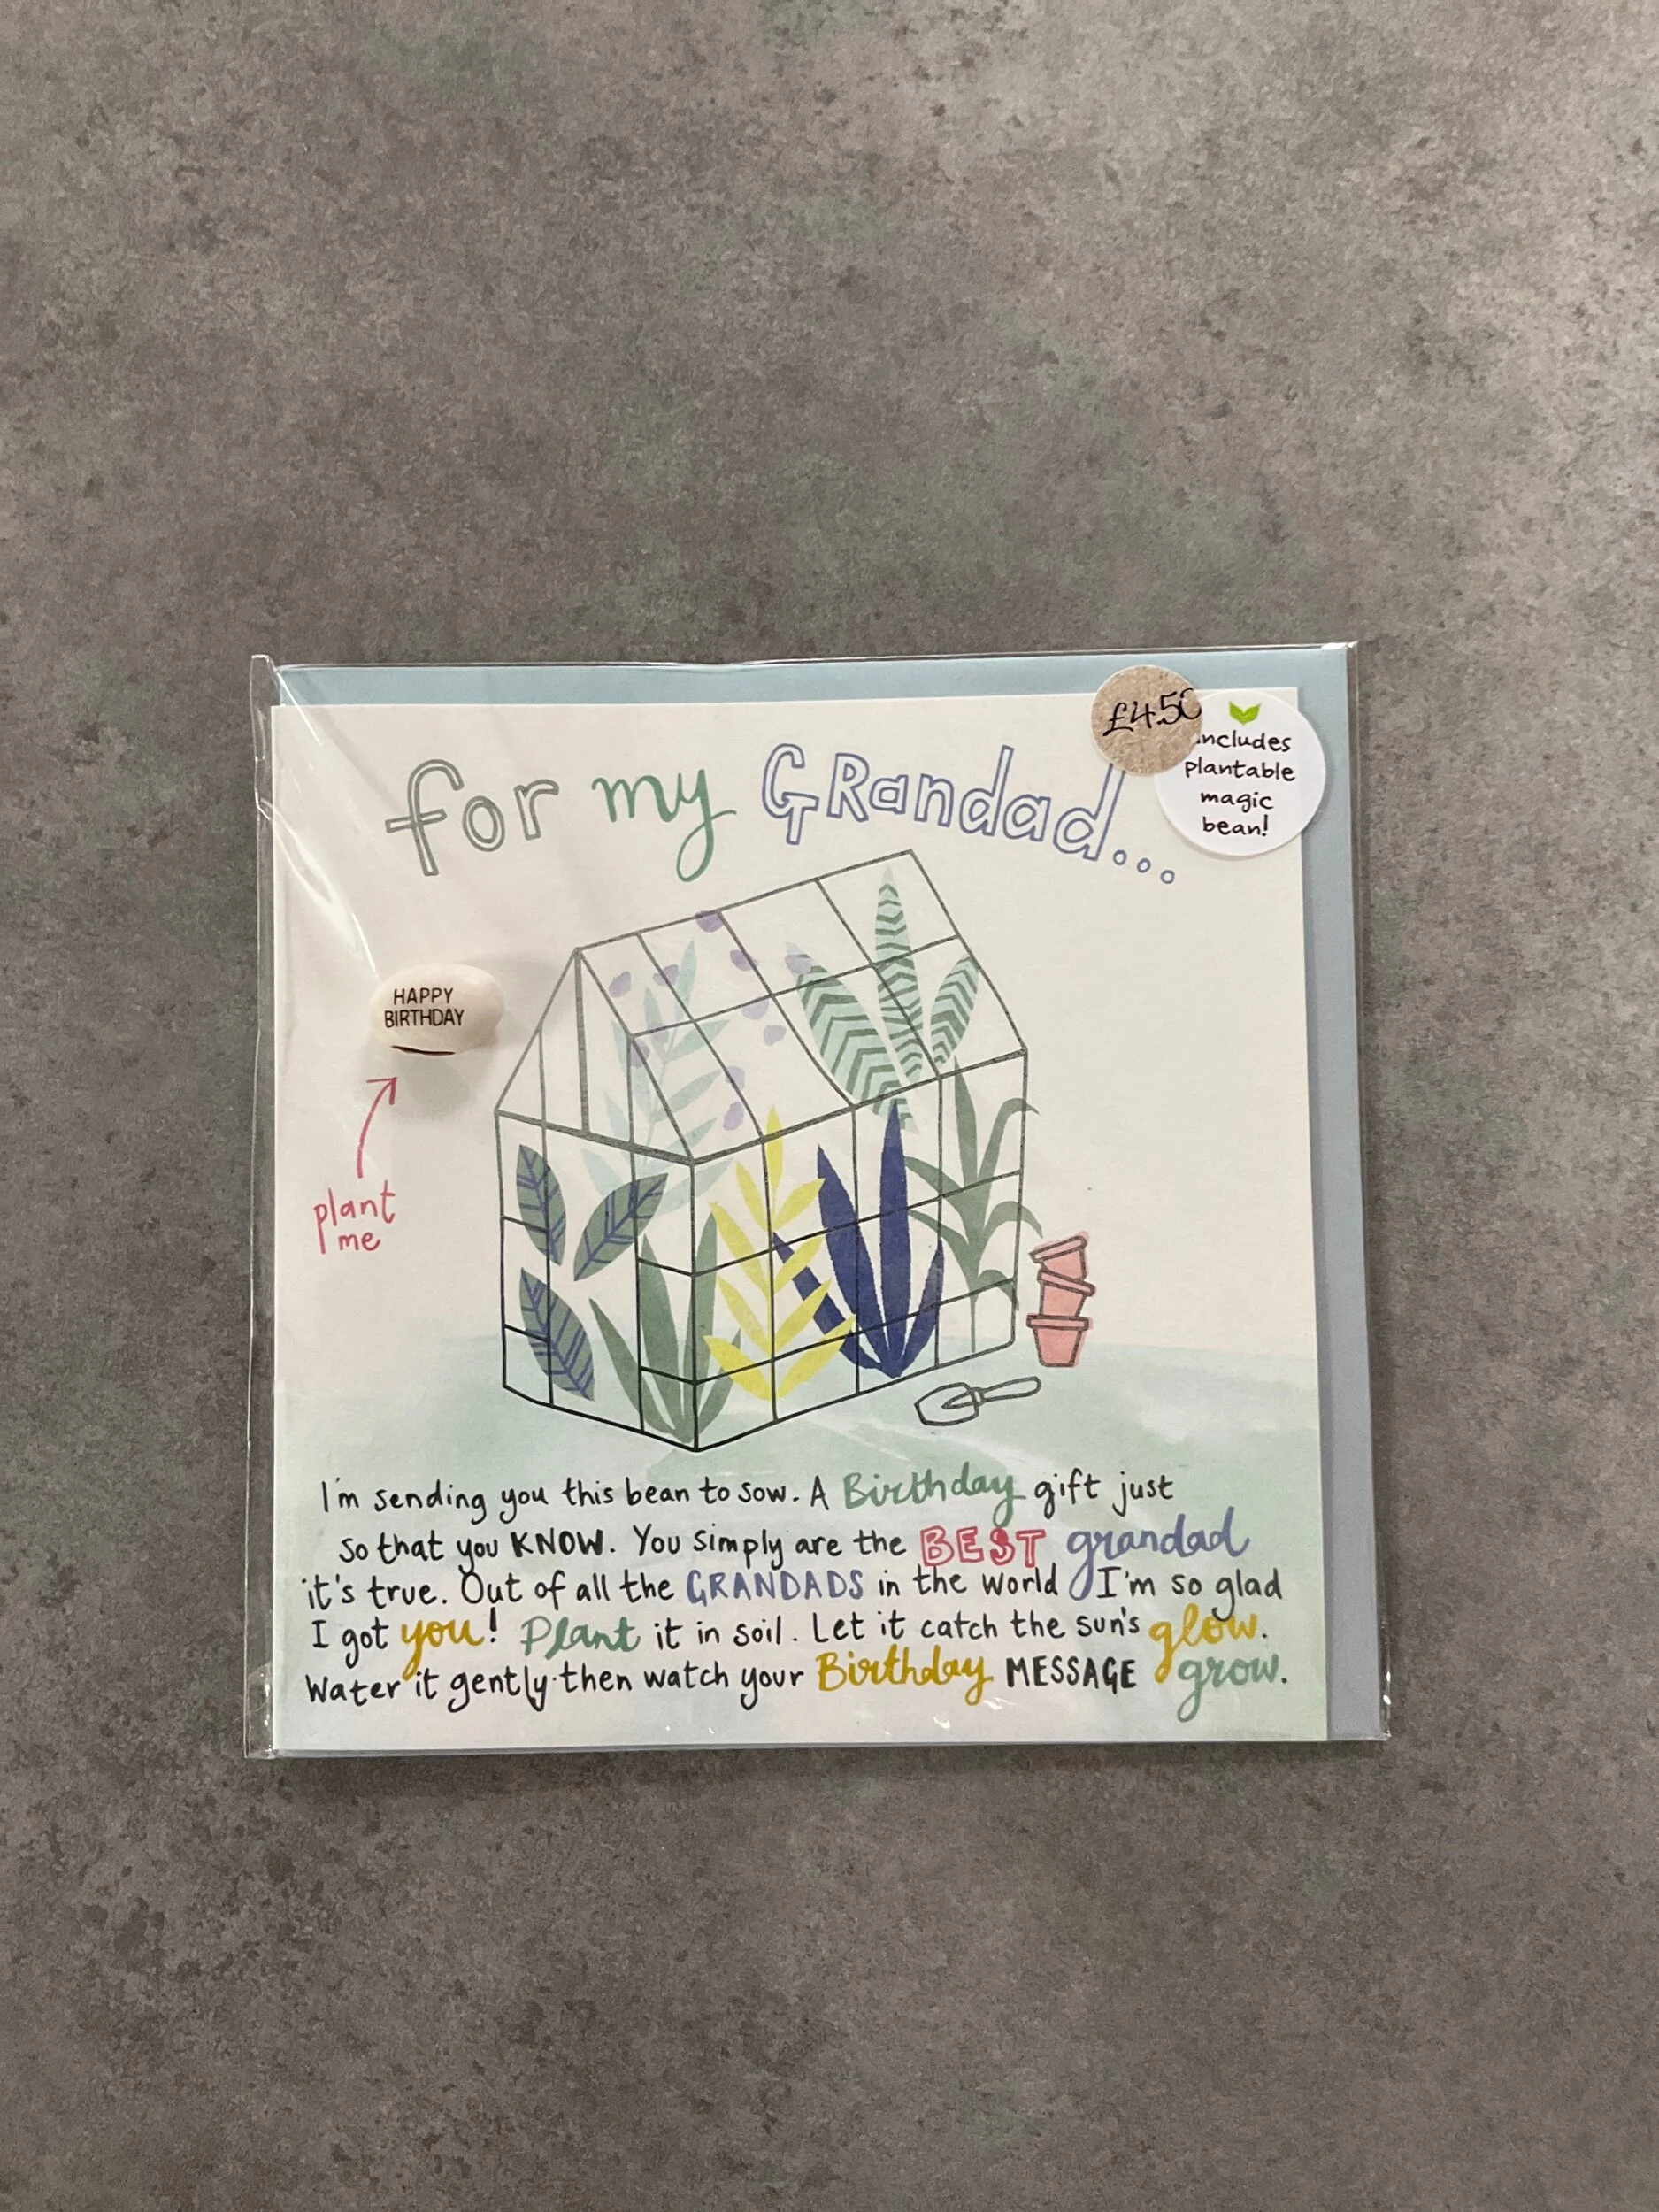 £4.50
includes
plantable
magic
bean!
for my GRandad...
HAPPY
BIRTHDAY
plant
me
I'm sending you this bean to sow. A Birthday gift just
so that you KNOW. You simply are the BEST grandad
it's true. Out of all the GRANDADS in the world I'm so glad
I got you! Plant it in soil. Let it catch the sun's glow.
Water it gently then watch your Birthday MESSAGE grow.